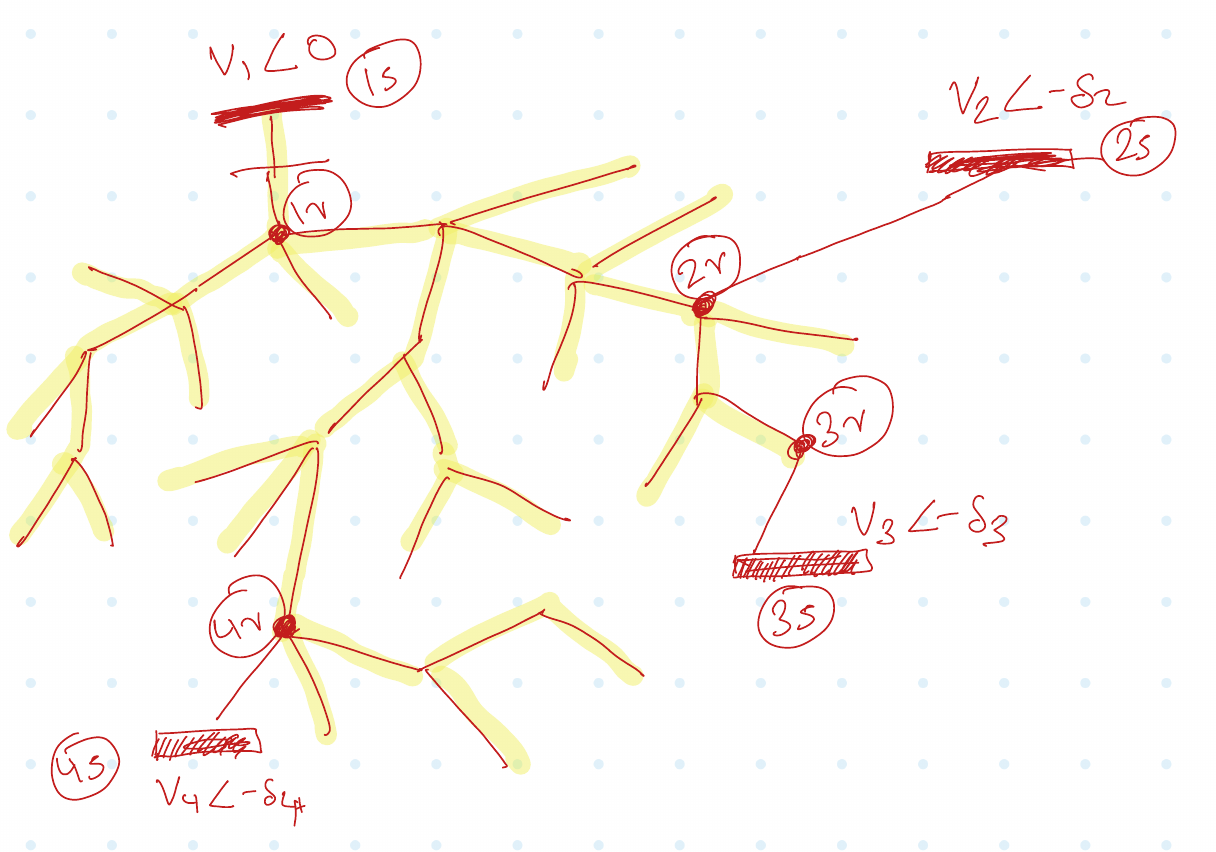 V₁∠0
1s
V₂∠-δ₂
2s
1r
2r
3r
V₃∠-δ₃
3s
4r
4s
V₄∠-δ₄